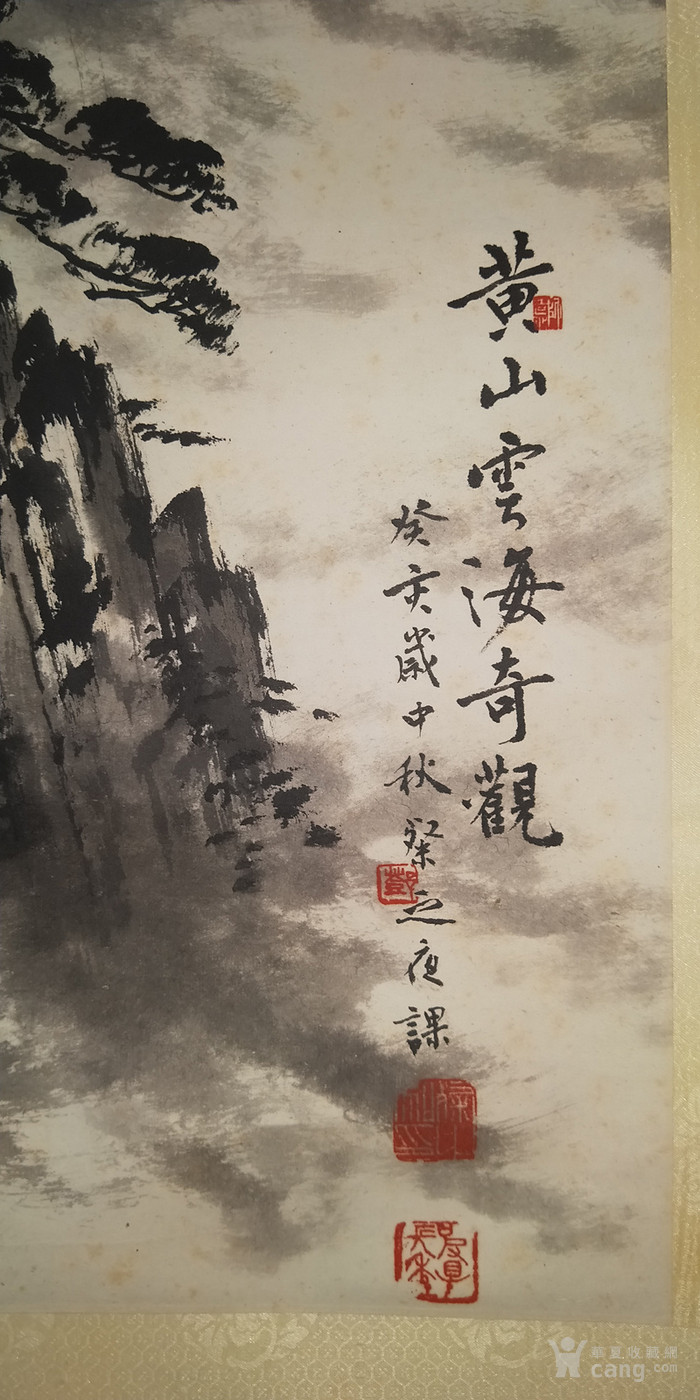 黃山雲海奇觀
癸亥歲中秋粲之夜課
鄧
華夏收藏網
cang.com